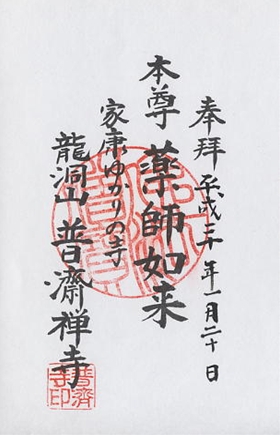 奉拝 平成三十年一月二十日
本尊 薬師如来
家康ゆかりの寺
龍洞山 普濟禅寺
普濟
寺印